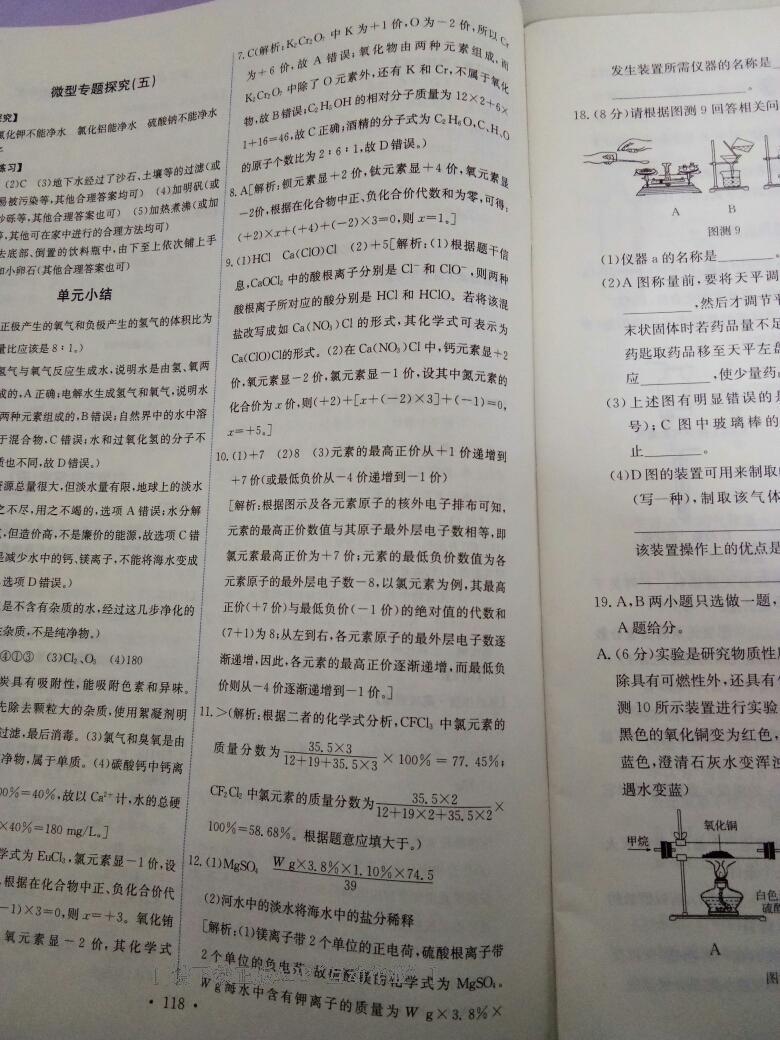 微型专题探究(五)
究】
氯化钾不能净水 氯化铝能净水 硫酸钠不能净水
练习】
(2)C (3)地下水经过了沙石、土壤等的过滤(或
易被污染等,其他合理答案均可) (4)加明矾(或
砂砾等,其他合理答案也可) (5)加热煮沸(或加
等,其他可在家中进行的合理方法均可)
去底部、倒置的饮料瓶中,由下至上依次铺上手
和小卵石(其他合理答案也可)
单元小结
正极产生的氧气和负极产生的氢气的体积比为
量比应该是8∶1。)
氢气与氧气反应生成水,说明水是由氢、氧两
成的,A正确;电解水生成氢气和氧气,说明水
两种元素组成的,B错误;自然界中的水中溶
于混合物,C错误;水和过氧化氢的分子不
质也不同,故D错误。)
资源总量很大,但淡水量有限,地球上的淡水
之不尽,用之不竭的,选项A错误;水分解
,但造价高,不是廉价的能源,故选项C错
是减少水中的钙、镁离子,不能将海水变成
,选项D错误。)
是不含有杂质的水,经过这几步净化的
杂质,不是纯净物。)
④①③ (3)Cl₂、O₃ (4)180
炭具有吸附性,能吸附色素和异味。
先除去颗粒大的杂质,使用絮凝剂明
过滤,最后消毒。(3)氯气和臭氧是由
净物,属于单质。(4)碳酸钙中钙离
00%=40%,故以Ca²⁺计,水的总硬
×40%=180 mg/L。]
学式为EuCl₂,氯元素显-1价,设
,根据在化合物中正、负化合价代
-1)×3=0,则x=+3。氧化铕
氧元素显-2价,其化学式
• 118 •
7. C(解析:K₂Cr₂O₇中K为+1价,O为-2价,所以Cr
为+6价,故A错误;氧化物由两种元素组成,而
K₂Cr₂O₇中除了O元素外,还有K和Cr,不属于氧化
物,故B错误;C₂H₅OH的相对分子质量为12×2+6×
1+16=46,故C正确;酒精的分子式为C₂H₆O,C、H、O
的原子个数比为2∶6∶1,故D错误。)
8. A[解析:钡元素显+2价,钛元素显+4价,氧元素显
-2价,根据在化合物中正、负化合价代数和为零,可得:
(+2)×x+(+4)+(-2)×3=0,则x=1。]
9. (1)HCl Ca(ClO)Cl (2)+5[解析:(1)根据题干信
息,CaOCl₂中的酸根离子分别是Cl⁻和ClO⁻,则两种
酸根离子所对应的酸分别是HCl和HClO。若将该混
盐改写成如Ca(NO₃)Cl的形式,其化学式可表示为
Ca(ClO)Cl的形式。(2)在Ca(NO₃)Cl中,钙元素显+2
价,氧元素显-2价,氯元素显-1价,设其中氮元素的
化合价为x价,则(+2)+[x+(-2)×3]+(-1)=0,
x=+5。]
10. (1)+7 (2)8 (3)元素的最高正价从+1价递增到
+7价(或最低负价从-4价递增到-1价)
[解析:根据图示及各元素原子的核外电子排布可知,
元素的最高正价数值与其原子最外层电子数相等,即
氯元素最高正价为+7价;元素的最低负价数值为各
元素原子的最外层电子数-8,以氯元素为例,其最高
正价(+7价)与最低负价(-1价)的绝对值的代数和
(7+1)为8;从左到右,各元素原子的最外层电子数逐
渐递增,因此,各元素的最高正价逐渐递增,而最低负
价则从-4价逐渐递增到-1价。]
11. >(解析:根据二者的化学式分析,CFCl₃中氯元素的
质量分数为 35.5×3/(12+19+35.5×3) ×100%=77.45%;
CF₂Cl₂中氯元素的质量分数为 35.5×2/(12+19×2+35.5×2) ×
100%=58.68%。根据题意应填大于。)
12. (1)MgSO₄ W g×3.8%×1.10%×74.5/39
(2)河水中的淡水将海水中的盐分稀释
[解析:(1)镁离子带2个单位的正电荷,硫酸根离子带
2个单位的负电荷,故硫酸镁的化学式为MgSO₄。
W g海水中含有钾离子的质量为W g×3.8%×
发生装置所需仪器的名称是
。
18. (8分)请根据图测9回答相关问
A B
图测9
(1)仪器a的名称是
(2)A图称量前,要将天平调
,然后才调节平
末状固体时若药品量不足
药匙取药品移至天平左盘
应 ,使少量药品
(3)上述图有明显错误的是
号);C图中玻璃棒的
止 。
(4)D图的装置可用来制取
(写一种),制取该气体
该装置操作上的优点是
19. A、B两小题只选做一题,
A题给分。
A. (6分)实验是研究物质性质
除具有可燃性外,还具有
测10所示装置进行实验
黑色的氧化铜变为红色,
蓝色,澄清石灰水变浑浊
遇水变蓝)
氧化铜
甲烷
白色
硫酸
A
图